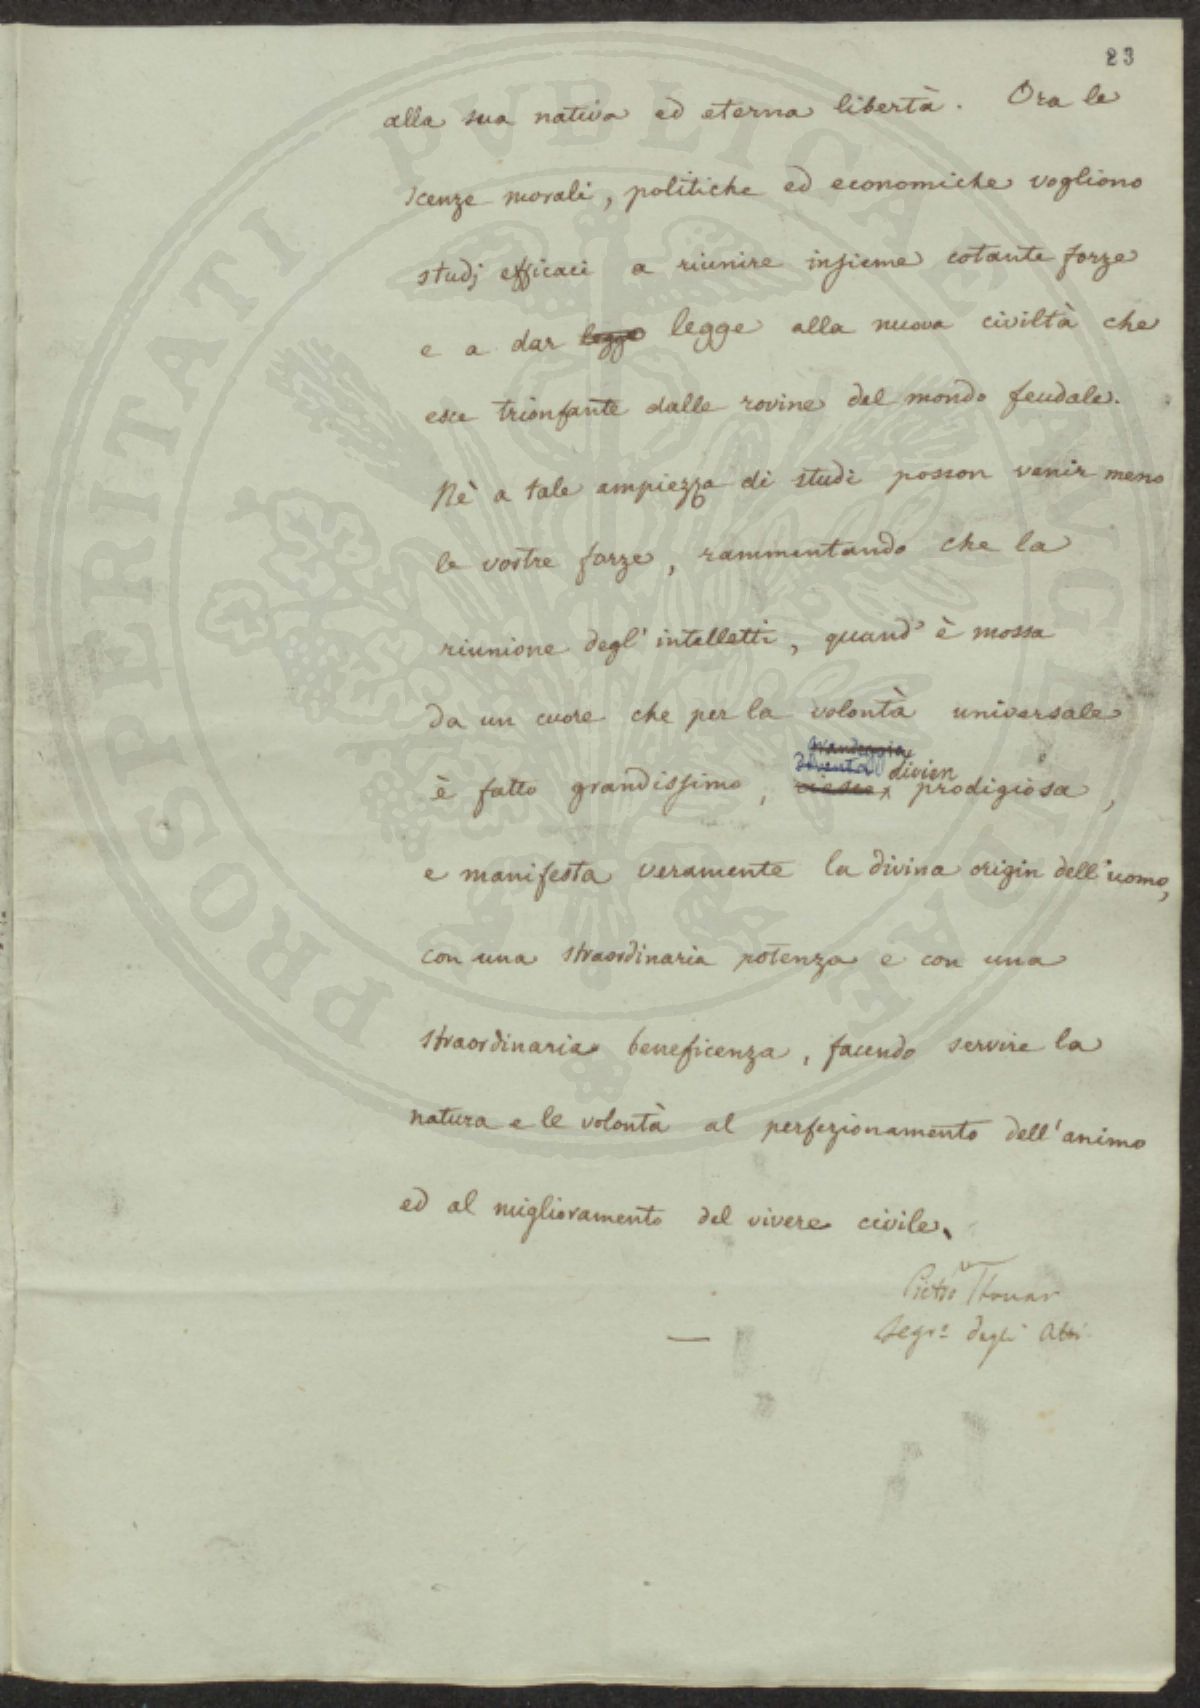 23
alla sua nativa ed eterna libertà. Ora le
scenze morali, politiche ed economiche vogliono
studj efficaci a riunire insieme cotante forze
e a dar legge legge alla nuova civiltà che
esce trionfante dalle rovine del mondo feudale.
Nè a tale ampiezza di studi posson venir meno
le vostre forze, rammentando che la
riunione degl' intelletti, quand' è mossa
da un cuore che per la volontà universale
grandeggia
diventa divien
è fatto grandissimo, riesce prodigiosa,
e manifesta veramente la divina origin dell' uomo,
con una straordinaria potenza e con una
straordinaria beneficenza, facendo servire la
natura e le volontà al perfezionamento dell' animo
ed al miglioramento del vivere civile.
Pietro Thouar
Segr.o degli Atti
—
PROSPERITATI PVBLICAE AVGENDAE